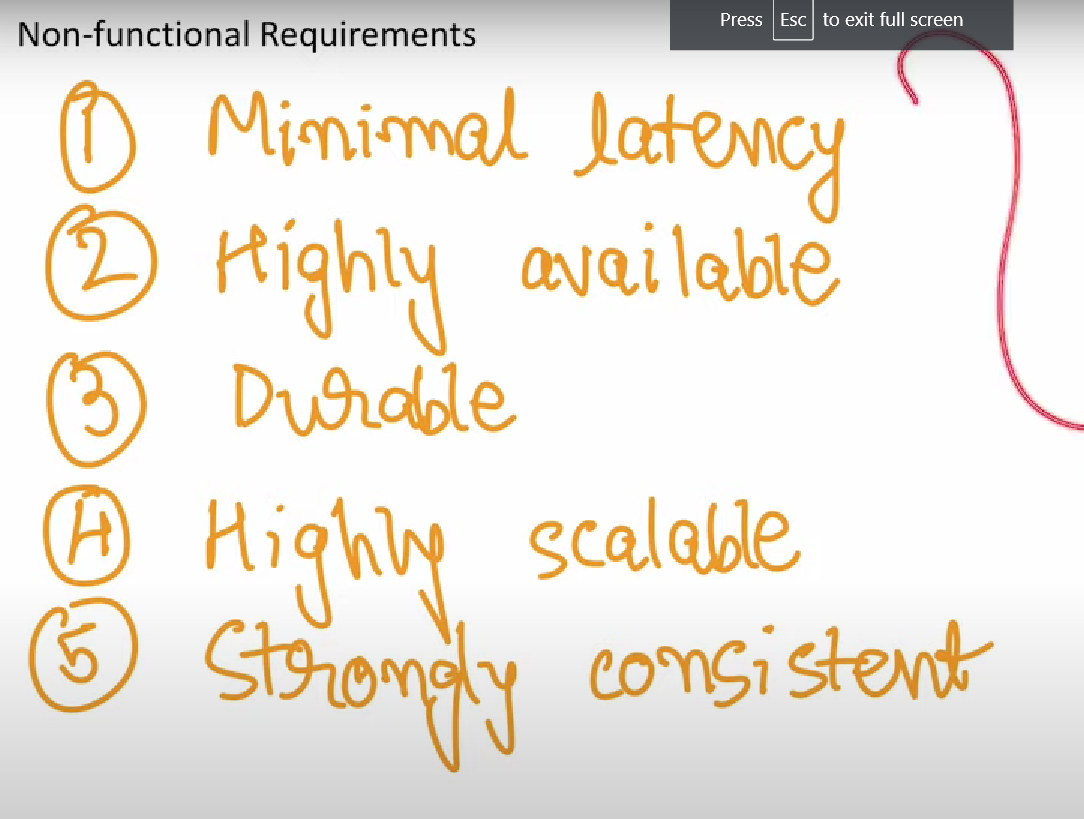 Non-functional Requirements
Press Esc to exit full screen
1 Minimal latency
2 Highly available
3 Durable
4 Highly scalable
5 Strongly consistent